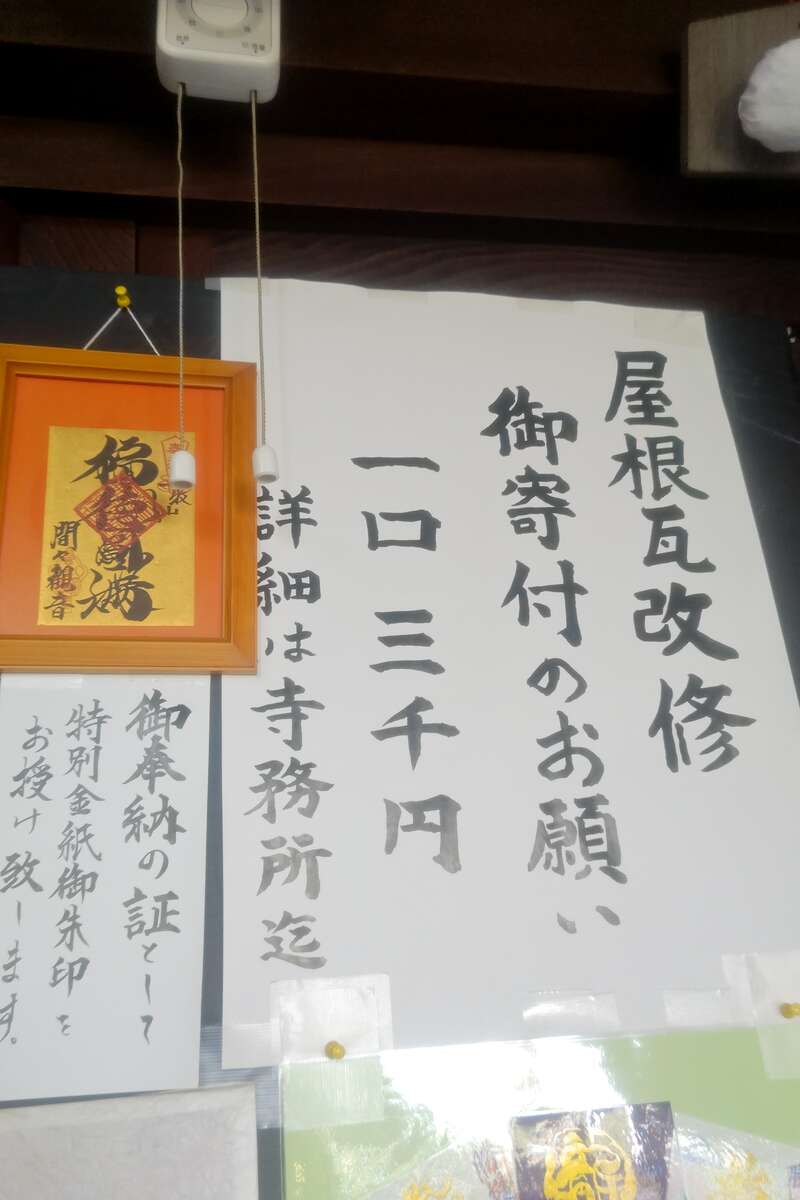 屋根瓦改修
御寄付のお願い
一口 三千円
詳細は寺務所迄
間々観音
御奉納の証として
特別金紙御朱印を
お授け致します。